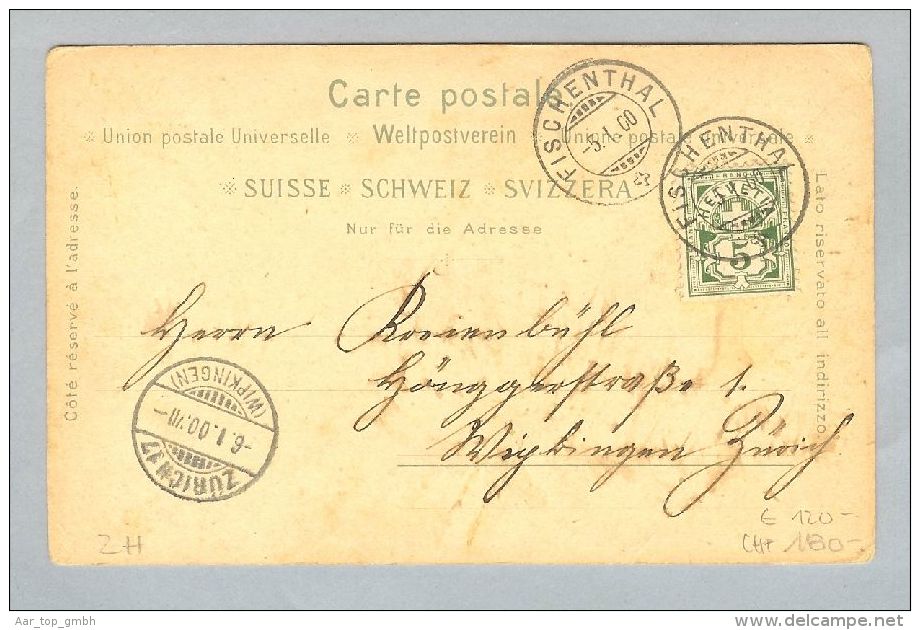 Carte postale
Union postale Universelle * Weltpostverein * Unione postale universale
* SUISSE * SCHWEIZ * SVIZZERA
Nur für die Adresse
Côté réservé à l'adresse.
Lato riservato all indirizzo
FISCHENTHAL
-5.I.00
FISCHENTHAL
HELVETIA
5
Herrn
Hönggerstraße 1.
Wipkingen Zürich
(WIPKINGEN)
-6.I.00.
ZÜRICH 17
ZH
€ 120-
CHF 180-
Aar_top_gmbh
delcampe.net